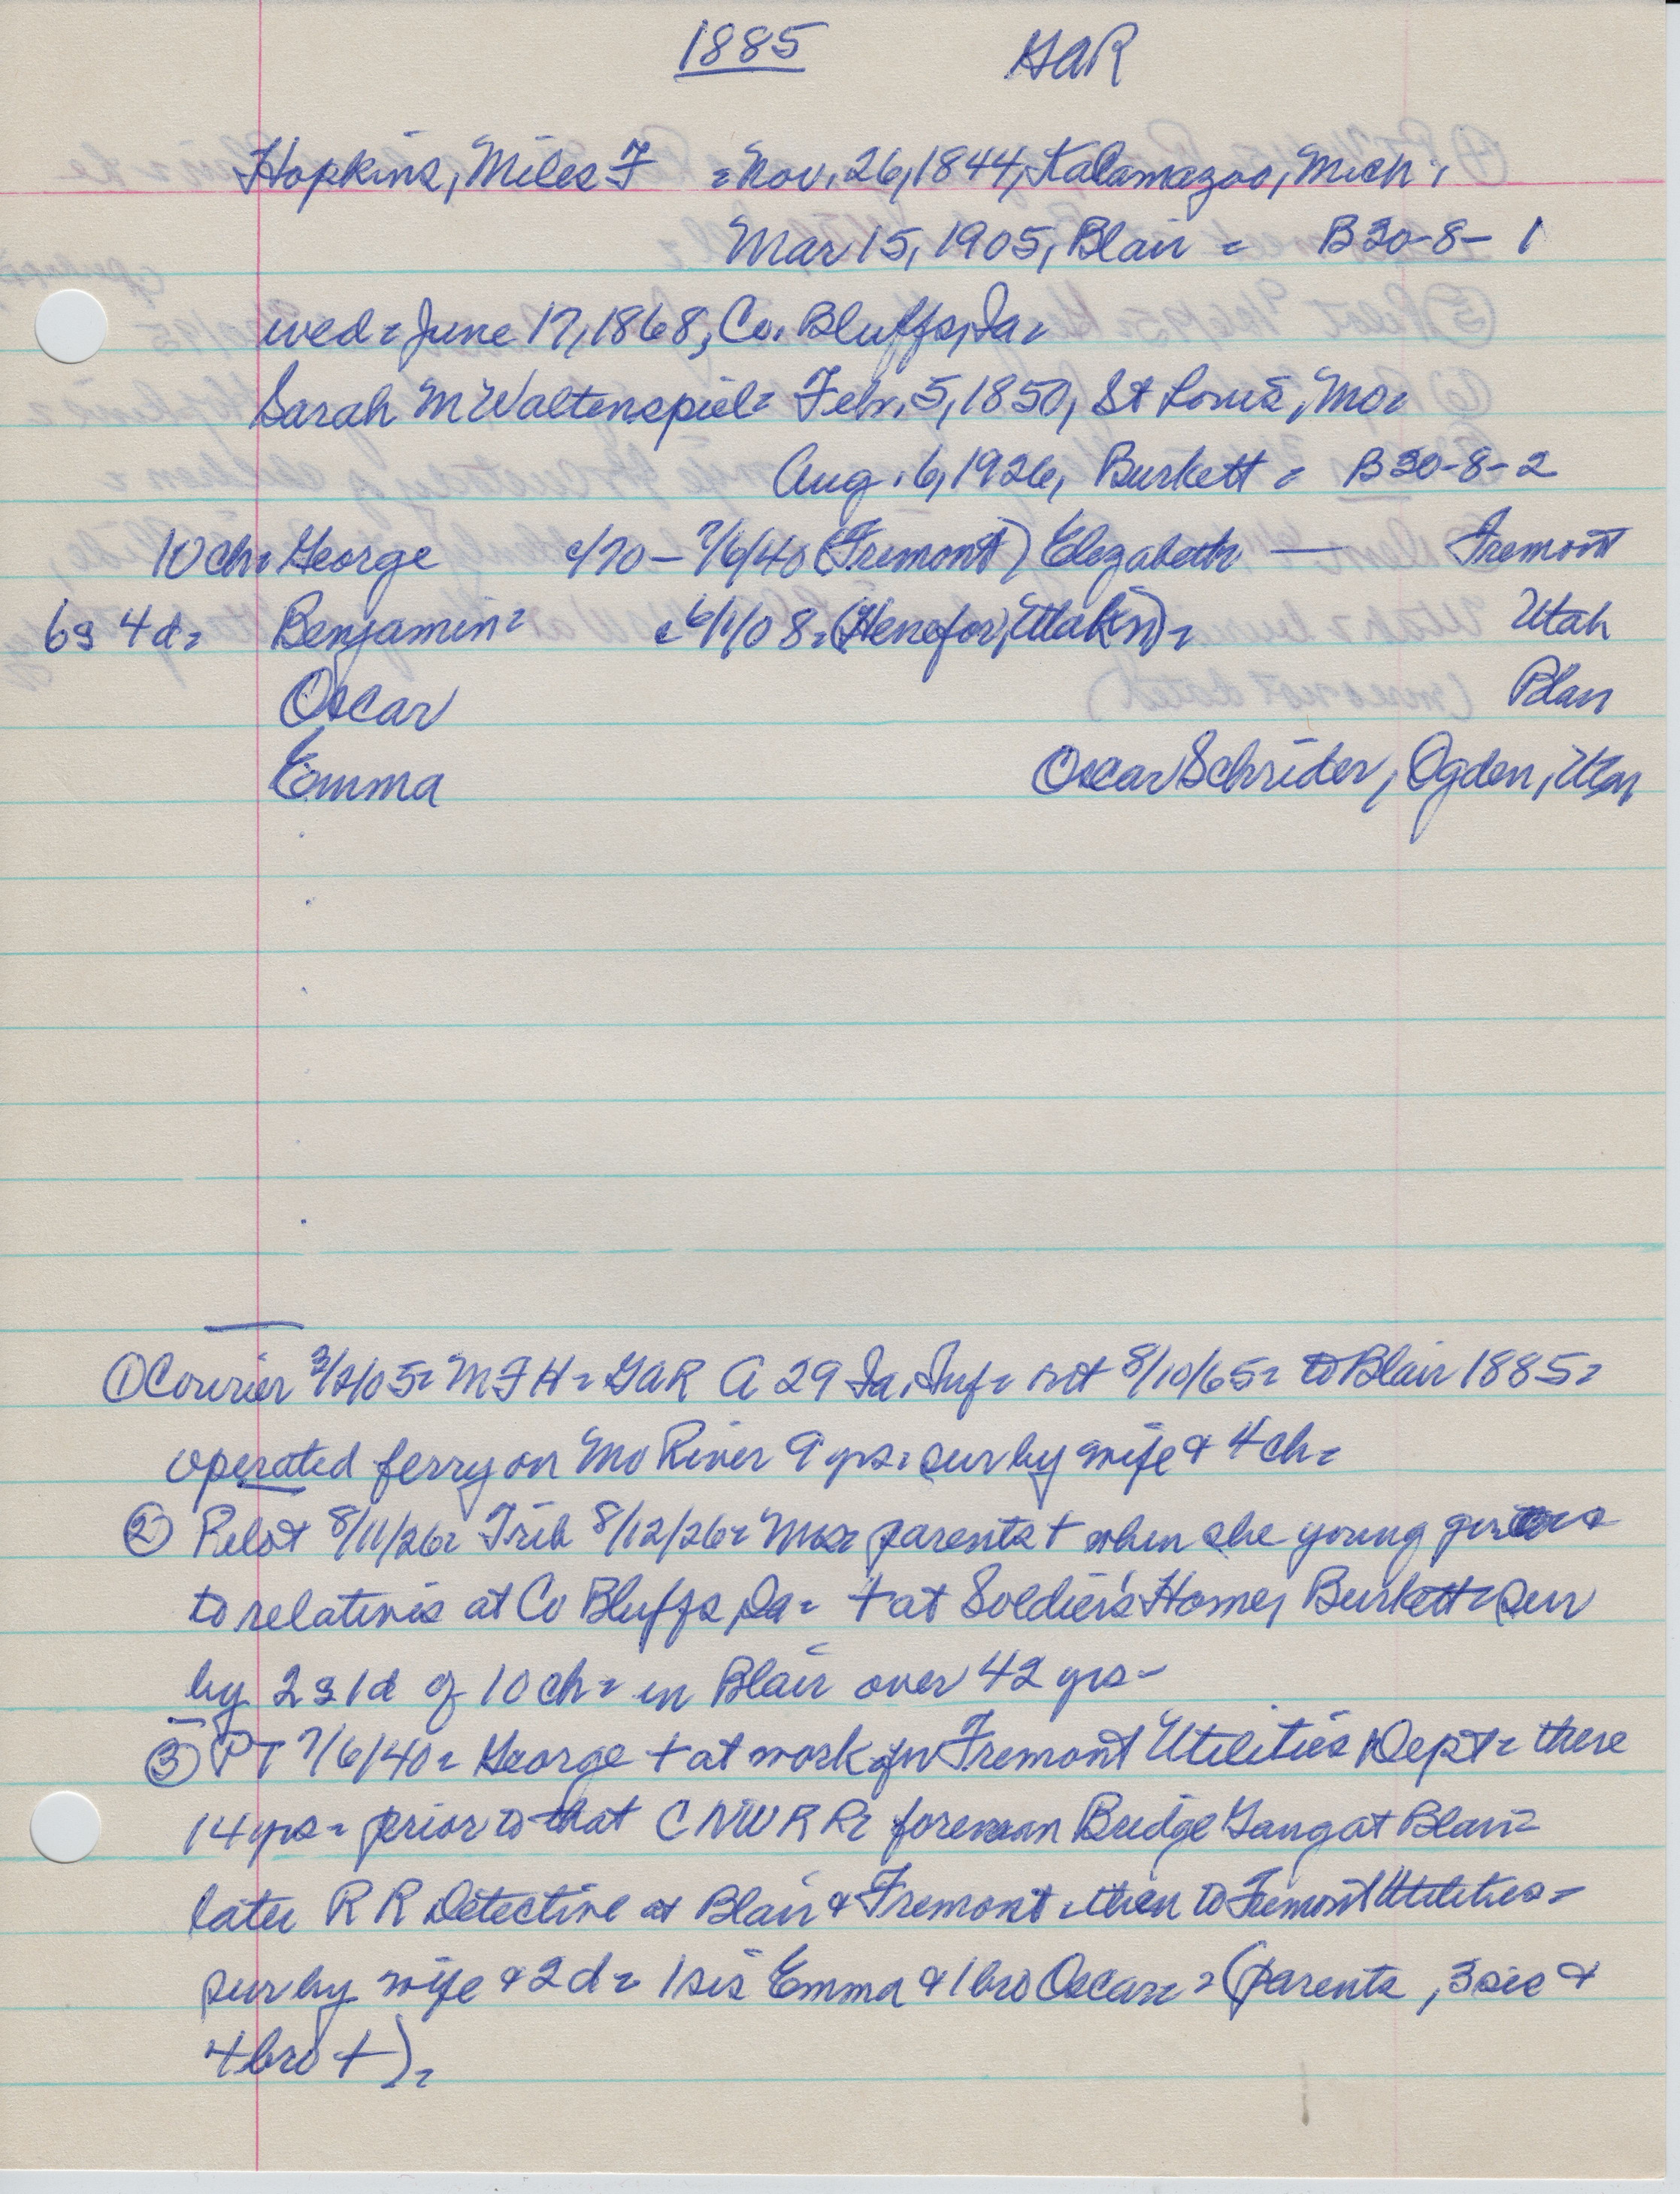 1885 GAR
Hopkins, Miles F = Nov. 26, 1844, Kalamazoo, Mich.,
Mar 15, 1905, Blair = B30-8-1
wed = June 17, 1868, Co. Bluffs, Ia =
Sarah M Waltenspiel = Febr. 5, 1850, St Louis, Mo =
Aug. 6, 1926, Burkett = B30-8-2
10 ch = George c/70 - 7/6/40 (Fremont) Elizabeth — Fremont
6s 4d = Benjamin = 6/1/08 = (Henefor, Utah) = Utah
Oscar Blair
Emma Oscar Schrider, Ogden, Utah
① Courier 3/ /05 = M F H = GAR A 29 Ia. Inf = 8/10/65 = to Blair 1885 =
operated ferry on Mo River 9 yrs = sur by wife & 4 ch =
② Pilot 8/11/26 = Trib 8/12/26 = Mrs = parents + when she young
to relatives at Co Bluffs, Ia = + at Soldier's Home, Burkett = sur
by 2s 1d of 10 ch = in Blair over 42 yrs =
③ PT 7/6/40 = George + at work for Fremont Utilities Dept = there
14 yrs = prior to that C NW R R = foreman Bridge Gang at Blair =
later R R Detective at Blair & Fremont, then to Fremont Utilities =
sur by wife & 2 d = 1 sis Emma & 1 bro Oscar = (parents, 3 sis &
4 bro +) =